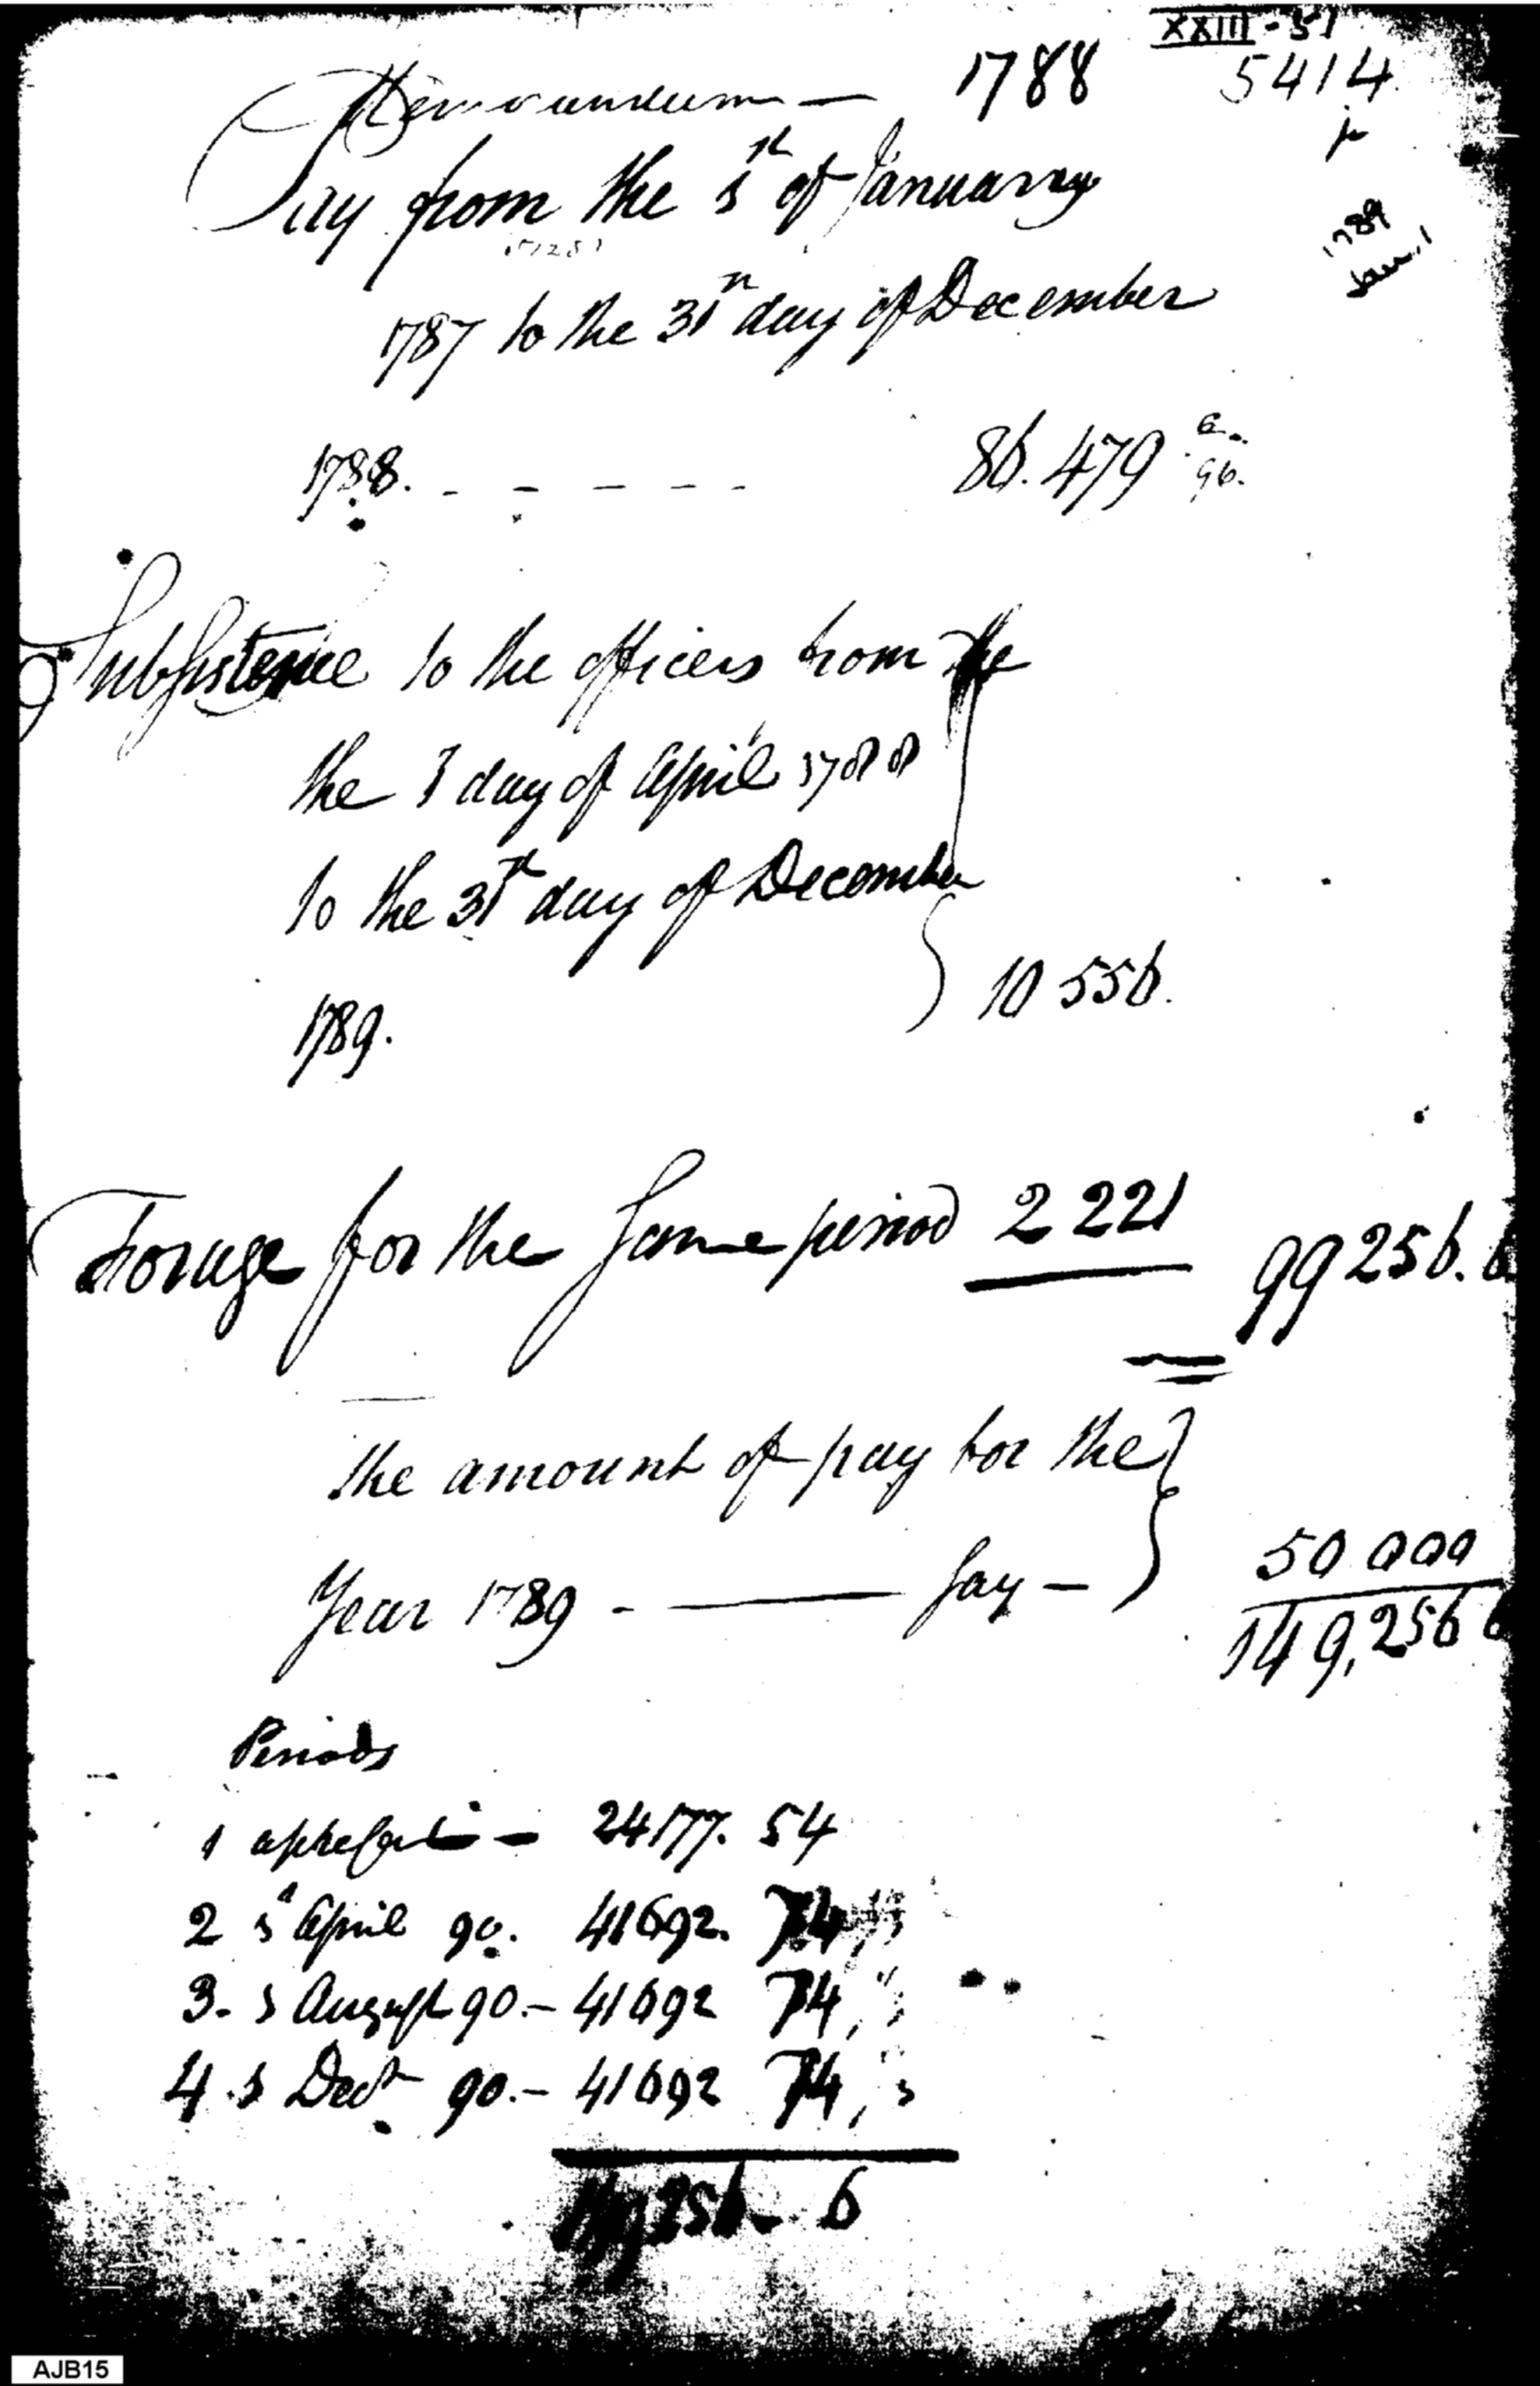 XXIII - 51
Memorandum — 1788 5414
Pay from the 1st of January
1789
Jan. 1
1787 to the 31st day of December
1788. - - - - - 86.479 96.
Subsistence to the officers from the
the 1 day of April 1788
to the 31st day of December
1789. } 10 556.
Forage for the Same period 2 221 99256. 6
the amount of pay for the }
Year 1789 - — Say - } 50 000
149,256 6
Periods
1 - 24177. 54
2 1st April 90. 41692. 74
3. 1 August 90. - 41692 74
4. 1 Decr 90. - 41692 74
149256 - 6
AJB15